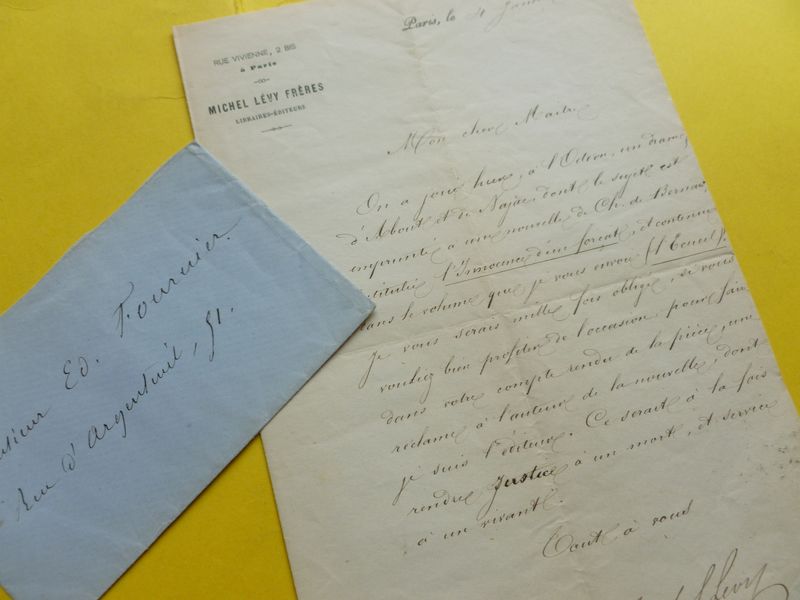 RUE VIVIENNE, 2 BIS
à Paris
MICHEL LÉVY FRÈRES
LIBRAIRES-ÉDITEURS
Paris, le 4
Mon cher Maitre
On a joué hier, à l'Odéon, un drame
d'About et de Najac, dont le sujet est
emprunté à une nouvelle de Ch. de Bernard,
intitulée l'Innocence d'un forçat, et contenue
dans le volume que je vous envoie (l'Écueil).
Je vous serais mille fois obligé, si vous
vouliez bien profiter de l'occasion, pour faire
dans votre compte rendu de la pièce, une
réclame à l'auteur de la nouvelle, dont
je suis l'éditeur. Ce serait à la fois
rendre justice à un mort, et service
à un vivant.
Tout à vous
Lévy
Monsieur Ed. Fournier.
Rue d'Argenteuil, 51.